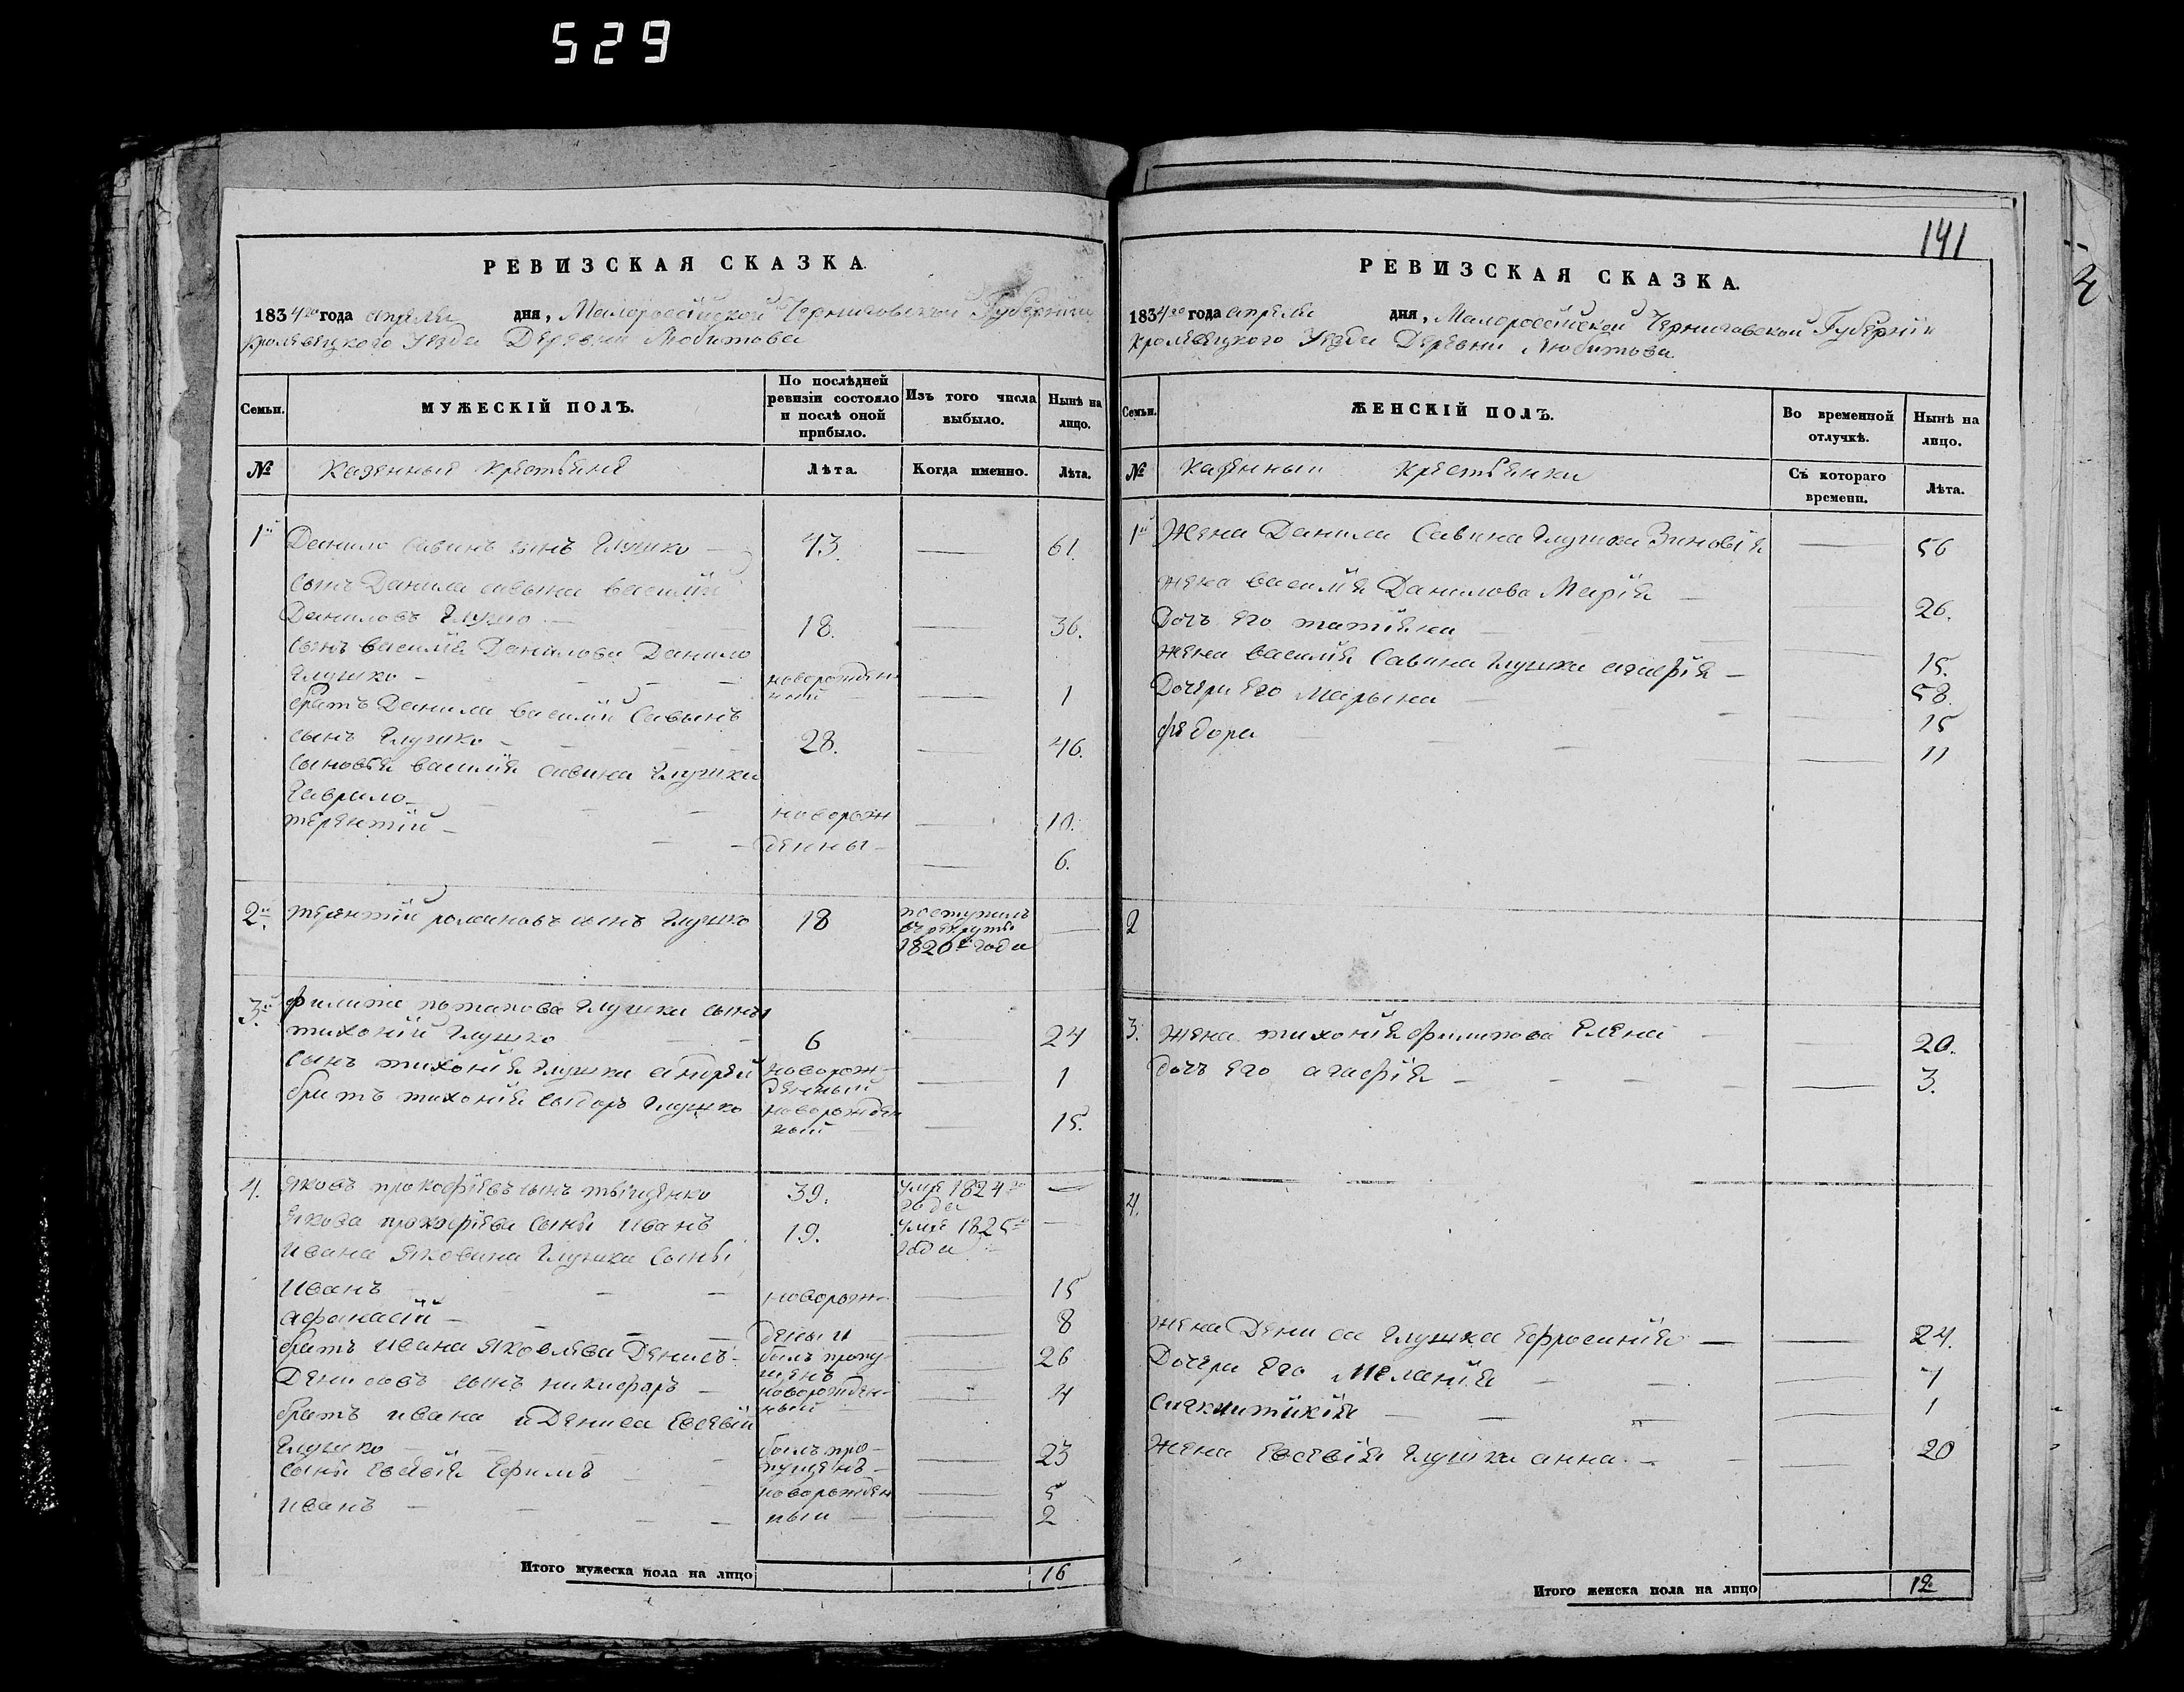 529
РЕВИЗСКАЯ СКАЗКА.
1834го года апреля дня, Малороссійской Черниговской Губерніи
кролевецкого Уезда Деревни Любитова
Семьи.
МУЖЕСКІЙ ПОЛЪ.
По послѣдней ревизіи состояло и послѣ оной прибыло.
Изъ того числа выбыло.
Нынѣ на лицо.
№
Казенныя крестьяне
Лѣта.
Когда именно.
Лѣта.
1й Данило савинъ сынъ Глушко — 43 — 61.
сынъ Данила савына василій
Даниловъ Глушко — 18. — 36.
сынъ василія Данилова Данило
Глушко — новорожден
ный — 1
братъ Данила василій Савынъ
сынъ Глушко — 28. — 46.
сыновя василія савина Глушка
Гаврило — новорож — 10.
терентій — денны — 6.
2й терентій романовъ сынъ Глушко 18 поступилъ
въ рекруты
1820г года —
3й филипа потапова Глушка сынъ
тихоній Глушко 6 — 24
сынъ тихонія Глушки андрей новорож-
денный — 1
братъ тихонія сыдоръ Глушко новорожден
ный — 15.
4. яковъ прокофіевъ сынъ 39. умре 1824го
года —
якова прокофіева сынъ иванъ 19. умре 1825го
года —
ивана яковина Глушка сыны
иванъ — новорож- — 15
афонасій — дены и — 8
братъ ивана яковлева Денисъ- былъ пропу-
щенъ — 26
Денисовъ сынъ никифоръ — новорожден-
ный — 4
братъ ивана и Дениса Евсевій
Глушко былъ про-
пущенъ — 23
сыны Евсевія Ефимъ новорожден — 5
иванъ — ныи — 2
Итого мужеска пола на лицо 16
141
РЕВИЗСКАЯ СКАЗКА.
1834го года апреля дня, Малороссійской Черниговской Губерніи
кролевецкого Уезда Деревни Любитова.
Семьи.
ЖЕНСКІЙ ПОЛЪ.
Во временной отлучкѣ.
Нынѣ на лицо.
№
Казенныи крестьянки
Съ котораго времени.
Лѣта.
1й Жена Данила Савина Глушка Зиновія — 56
жена василія Данилова Марія — 26.
Дочь его татіяна — 15.
жена василія Савина Глушка агафія — 58.
Дочери его Марына — 15
федора — 11
2
3. жена тихонія филипова Елена — 20.
дочь его агафія — 3.
4.
жена Дениса Глушка Ефросинія — 24.
Дочери его Меланія — 4
— 1
жена Евсевія Глушка анна. — 20
Итого женска пола на лицо 12